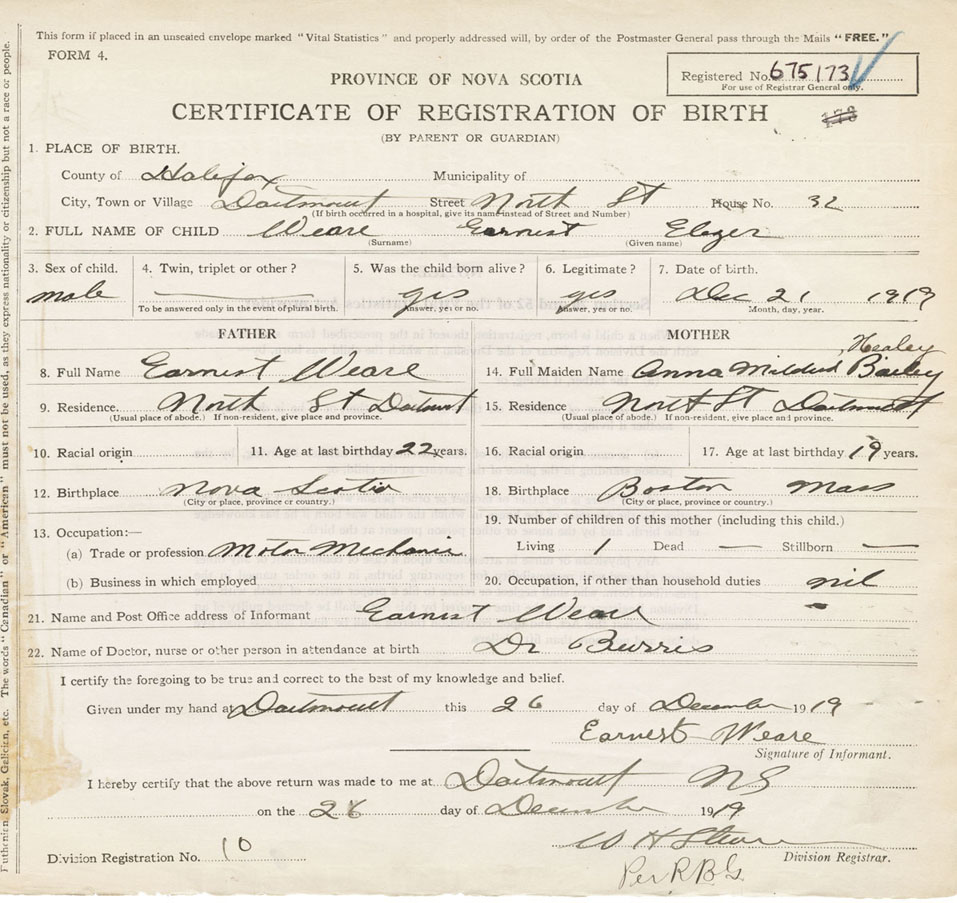 This form if placed in an unsealed envelope marked "Vital Statistics" and properly addressed will, by order of the Postmaster General pass through the Mails "FREE."
FORM 4.
Registered No. 675173
For use of Registrar General only.
PROVINCE OF NOVA SCOTIA
CERTIFICATE OF REGISTRATION OF BIRTH
(BY PARENT OR GUARDIAN)
1. PLACE OF BIRTH.
County of Halifax Municipality of
City, Town or Village Dartmouth Street North St House No. 32
(If birth occurred in a hospital, give its name instead of Street and Number)
2. FULL NAME OF CHILD Weare Earnest Elezer
(Surname) (Given name)
3. Sex of child. 4. Twin, triplet or other? 5. Was the child born alive? 6. Legitimate? 7. Date of birth.
male — yes yes Dec 21 1919
To be answered only in the event of plural birth. Answer, yes or no. Answer, yes or no. Month, day, year.
FATHER MOTHER
Healey
8. Full Name Earnest Weare 14. Full Maiden Name Anna Mildred Bailey
9. Residence. North St Dartmouth 15. Residence North St Dartmouth
(Usual place of abode.) If non-resident, give place and province. (Usual place of abode.) If non-resident, give place and province.
10. Racial origin 11. Age at last birthday 22 years. 16. Racial origin 17. Age at last birthday 19 years.
12. Birthplace Nova Scotia 18. Birthplace Boston Mass
(City or place, province or country.) (City or place, province or country.)
13. Occupation:— 19. Number of children of this mother (including this child.)
(a) Trade or profession Motor Mechanic Living 1 Dead — Stillborn —
(b) Business in which employed 20. Occupation, if other than household duties nil
21. Name and Post Office address of Informant Earnest Weare
22. Name of Doctor, nurse or other person in attendance at birth Dr Burris
I certify the foregoing to be true and correct to the best of my knowledge and belief.
Given under my hand at Dartmouth this 26 day of December 1919
Earnest Weare
Signature of Informant.
I hereby certify that the above return was made to me at Dartmouth NS
on the 26 day of December 1919
W H
Division Registration No. 10 Division Registrar.
Per R.B.G.
Ruthenian, Slovak, Galician, etc. The words "Canadian" or "American" must not be used, as they express nationality or citizenship but not a race or people.